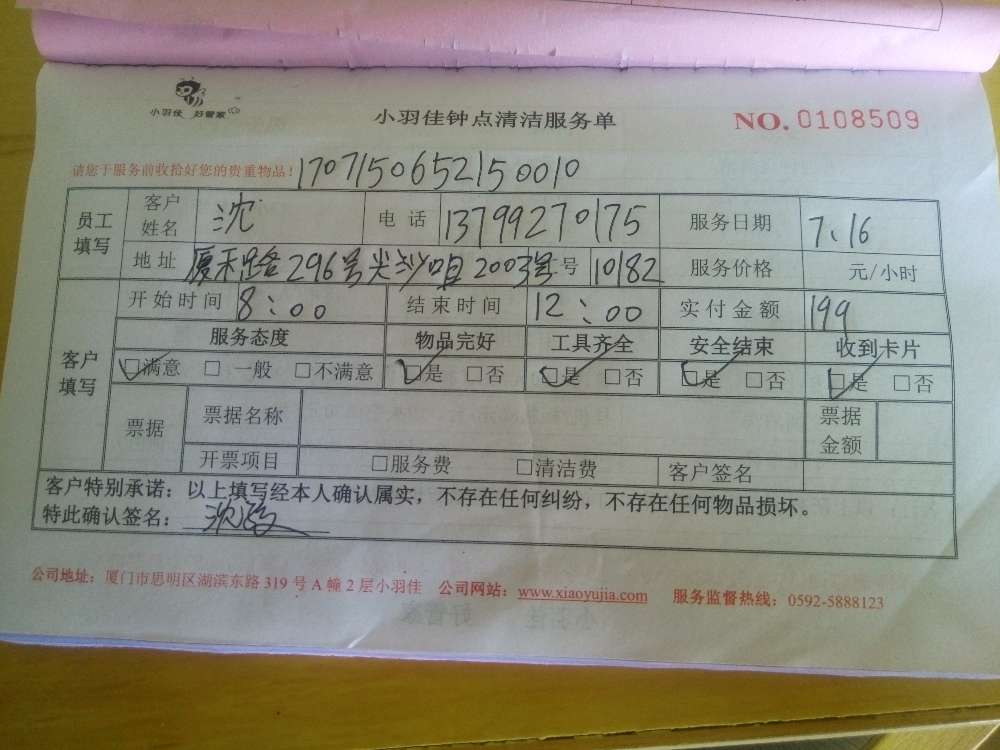 小羽佳 好管家
小羽佳钟点清洁服务单 NO. 0108509
请您于服务前收拾好您的贵重物品! 170715065215 0010
员工填写 客户姓名 沈 电话 13799270175 服务日期 7.16
地址 厦禾路296号尖沙咀2003室 号 10182 服务价格 元/小时
客户填写 开始时间 8:00 结束时间 12:00 实付金额 199
服务态度 物品完好 工具齐全 安全结束 收到卡片
□满意 □一般 □不满意 □是 □否 □是 □否 □是 □否 □是 □否
票据 票据名称 票据金额
开票项目 □服务费 □清洁费 客户签名
客户特别承诺:以上填写经本人确认属实,不存在任何纠纷,不存在任何物品损坏。
特此确认签名: 沈
公司地址:厦门市思明区湖滨东路 319 号 A 幢 2 层小羽佳 公司网站:www.xiaoyujia.com 服务监督热线:0592-5888123